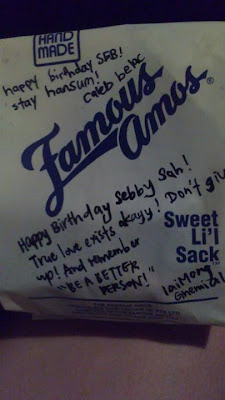 HAND
MADE
happy birthday SEB!
stay hansum!
caleb
Famous
Amos®
Happy Birthday sebby sah!
True love exists okayy! Don't giv
up! And remember
"BE A BETTER
PERSON!"
Sweet
Li'l
Sack™